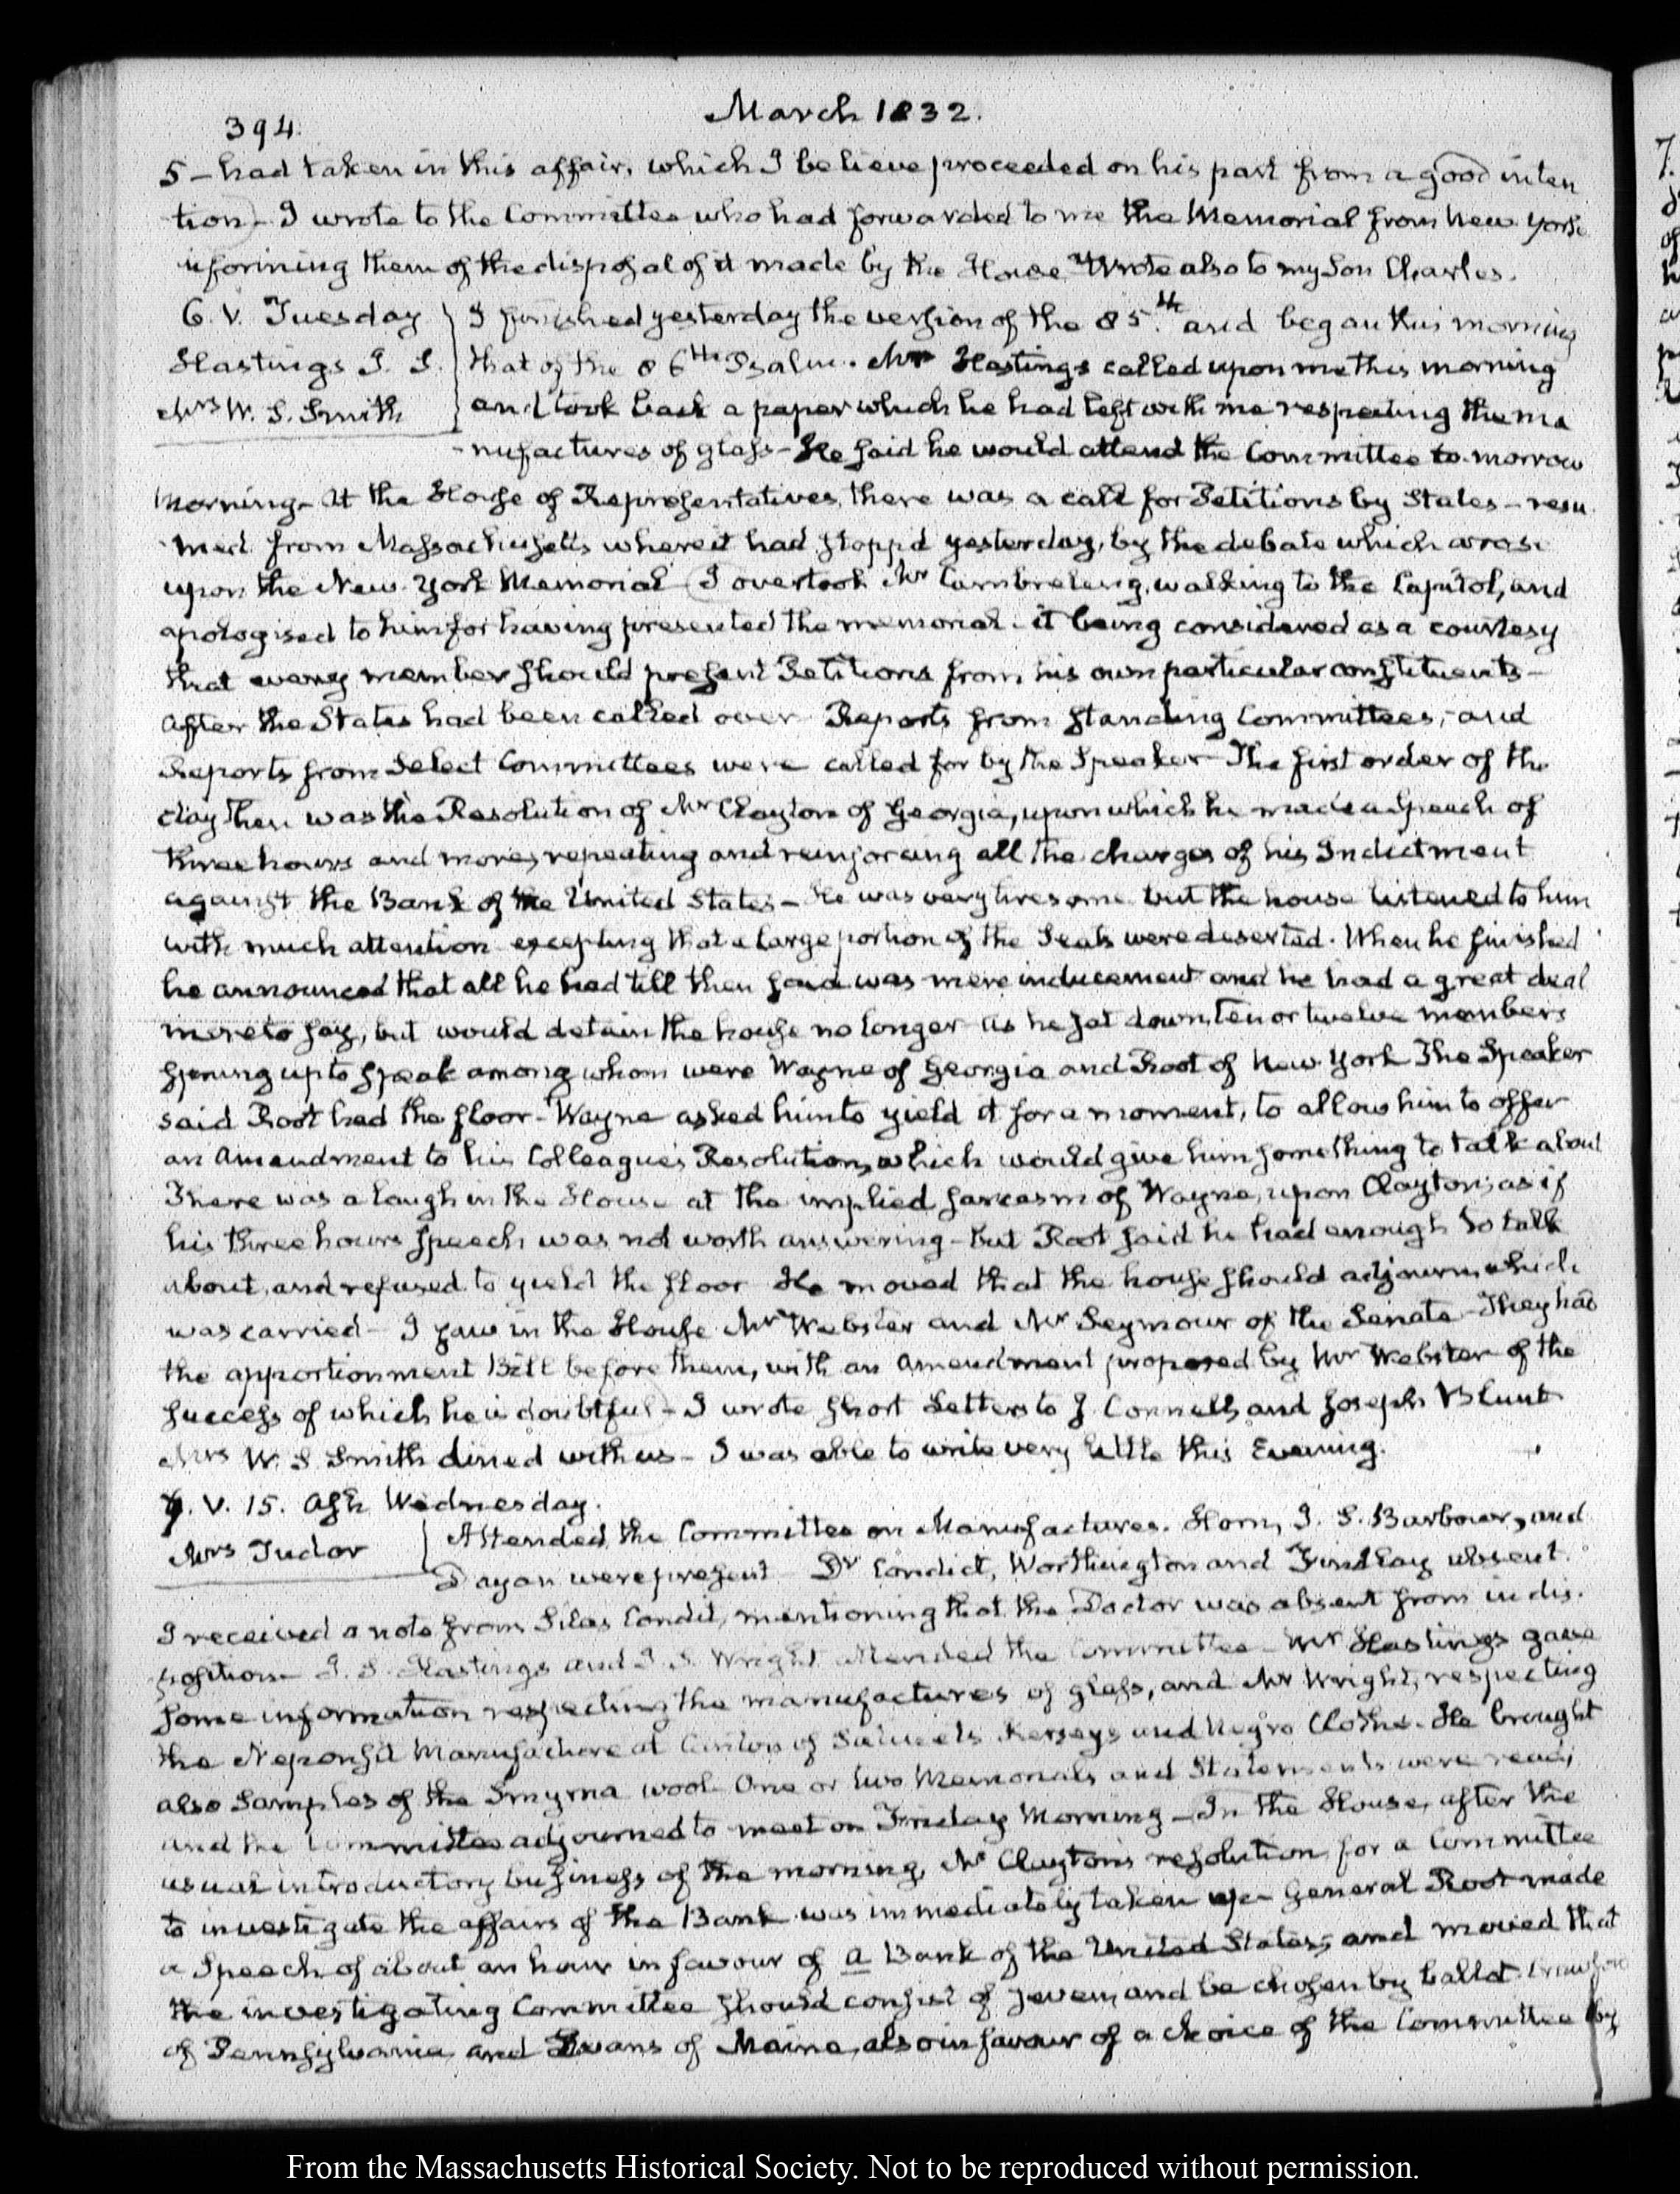 394.
March 1832.
5 - had taken in this affair, which I believe proceeded on his part from a good inten
tion - I wrote to the Committee who had forwarded to me the Memorial from New York
informing them of the disposal of it made by the House Wrote also to my Son Charles.
6. V. Tuesday
Hastings J. S.
Mrs W. S. Smith
I finished yesterday the version of the 85.th and began this morning
that of the 86th Psalm. Mr Hastings called upon me this morning
and took back a paper which he had left with me respecting the ma
-nufactures of glass - He said he would attend the Committee to-morrow
Morning - At the House of Representatives, there was a call for Petitions by States - resu
med from Massachusetts where it had stopp'd yesterday, by the debate which arose
upon the New-York Memorial - I overtook Mr Cambreleng, walking to the Capitol, and
apologised to him for having presented the memorial - it being considered as a courtesy
that every member should present Petitions from his own particular constituents -
After the States had been called over Reports from standing Committees, and
Reports from Select Committees were called for by the Speaker - The first order of the
day then was the Resolution of Mr Clayton of Georgia, upon which he made a Speech of
three hours and more, repeating and reinforcing all the charges of his Indictment
against the Bank of the United States - He was very tiresome but the house listened to him
with much attention excepting that a large portion of the Seats were deserted. When he finished
he announced that all he had till then said was mere inducement and he had a great deal
more to say, but would detain the house no longer - As he sat down, ten or twelve members
sprung up to speak among whom were Wayne of Georgia and Root of New-York The Speaker
said Root had the floor - Wayne asked him to yield it for a moment, to allow him to offer
an Amendment to his Colleague's Resolution, which would give him something to talk about
There was a laugh in the House at the implied sarcasm of Wayne, upon Clayton; as if
his three hours speech was not worth answering - but Root said he had enough to talk
about, and refused to yield the floor He moved that the house should adjourn which
was carried - I saw in the House Mr Webster and Mr Seymour of the Senate - They had
the apportionment Bill before them, with an Amendment proposed by Mr Webster of the
success of which he is doubtful - I wrote short Letters to J. Connell, and Joseph Blunt
Mrs W. S. Smith dined with us - I was able to write very little this Evening.
7. V. 15. Ash Wednesday.
Mrs Tudor
Attended the Committee on Manufactures. Horn, J. S. Barbour, and
Dayan were present Dr Condict, Worthington and Findlay absent.
I received a note from Silas Condit, mentioning that the Doctor was absent from indis-
position - J. S. Hastings and J. S. Wright attended the Committee - Mr Hastings gave
some information respecting the manufactures of glass, and Mr Wright, respecting
the Neponsit Manufacture at Canton of Satinets Kerseys and Negro Cloths. He brought
also Samples of the Smyrna wool - One or two Memorials and Statements were read;
and the Committee adjourned to meet on Friday Morning - In the House, after the
usual introductory business of the morning, Mr Clayton's resolution for a Committee
to investigate the affairs of the Bank was immediately taken up - General Root made
a Speech of about an hour in favour of a Bank of the United States, and moved that
the investigating Committee should consist of seven, and be chosen by ballot. Crawford
of Pennsylvania, and Evans of Maine, also in favour of a choice of the Committee by
From the Massachusetts Historical Society. Not to be reproduced without permission.